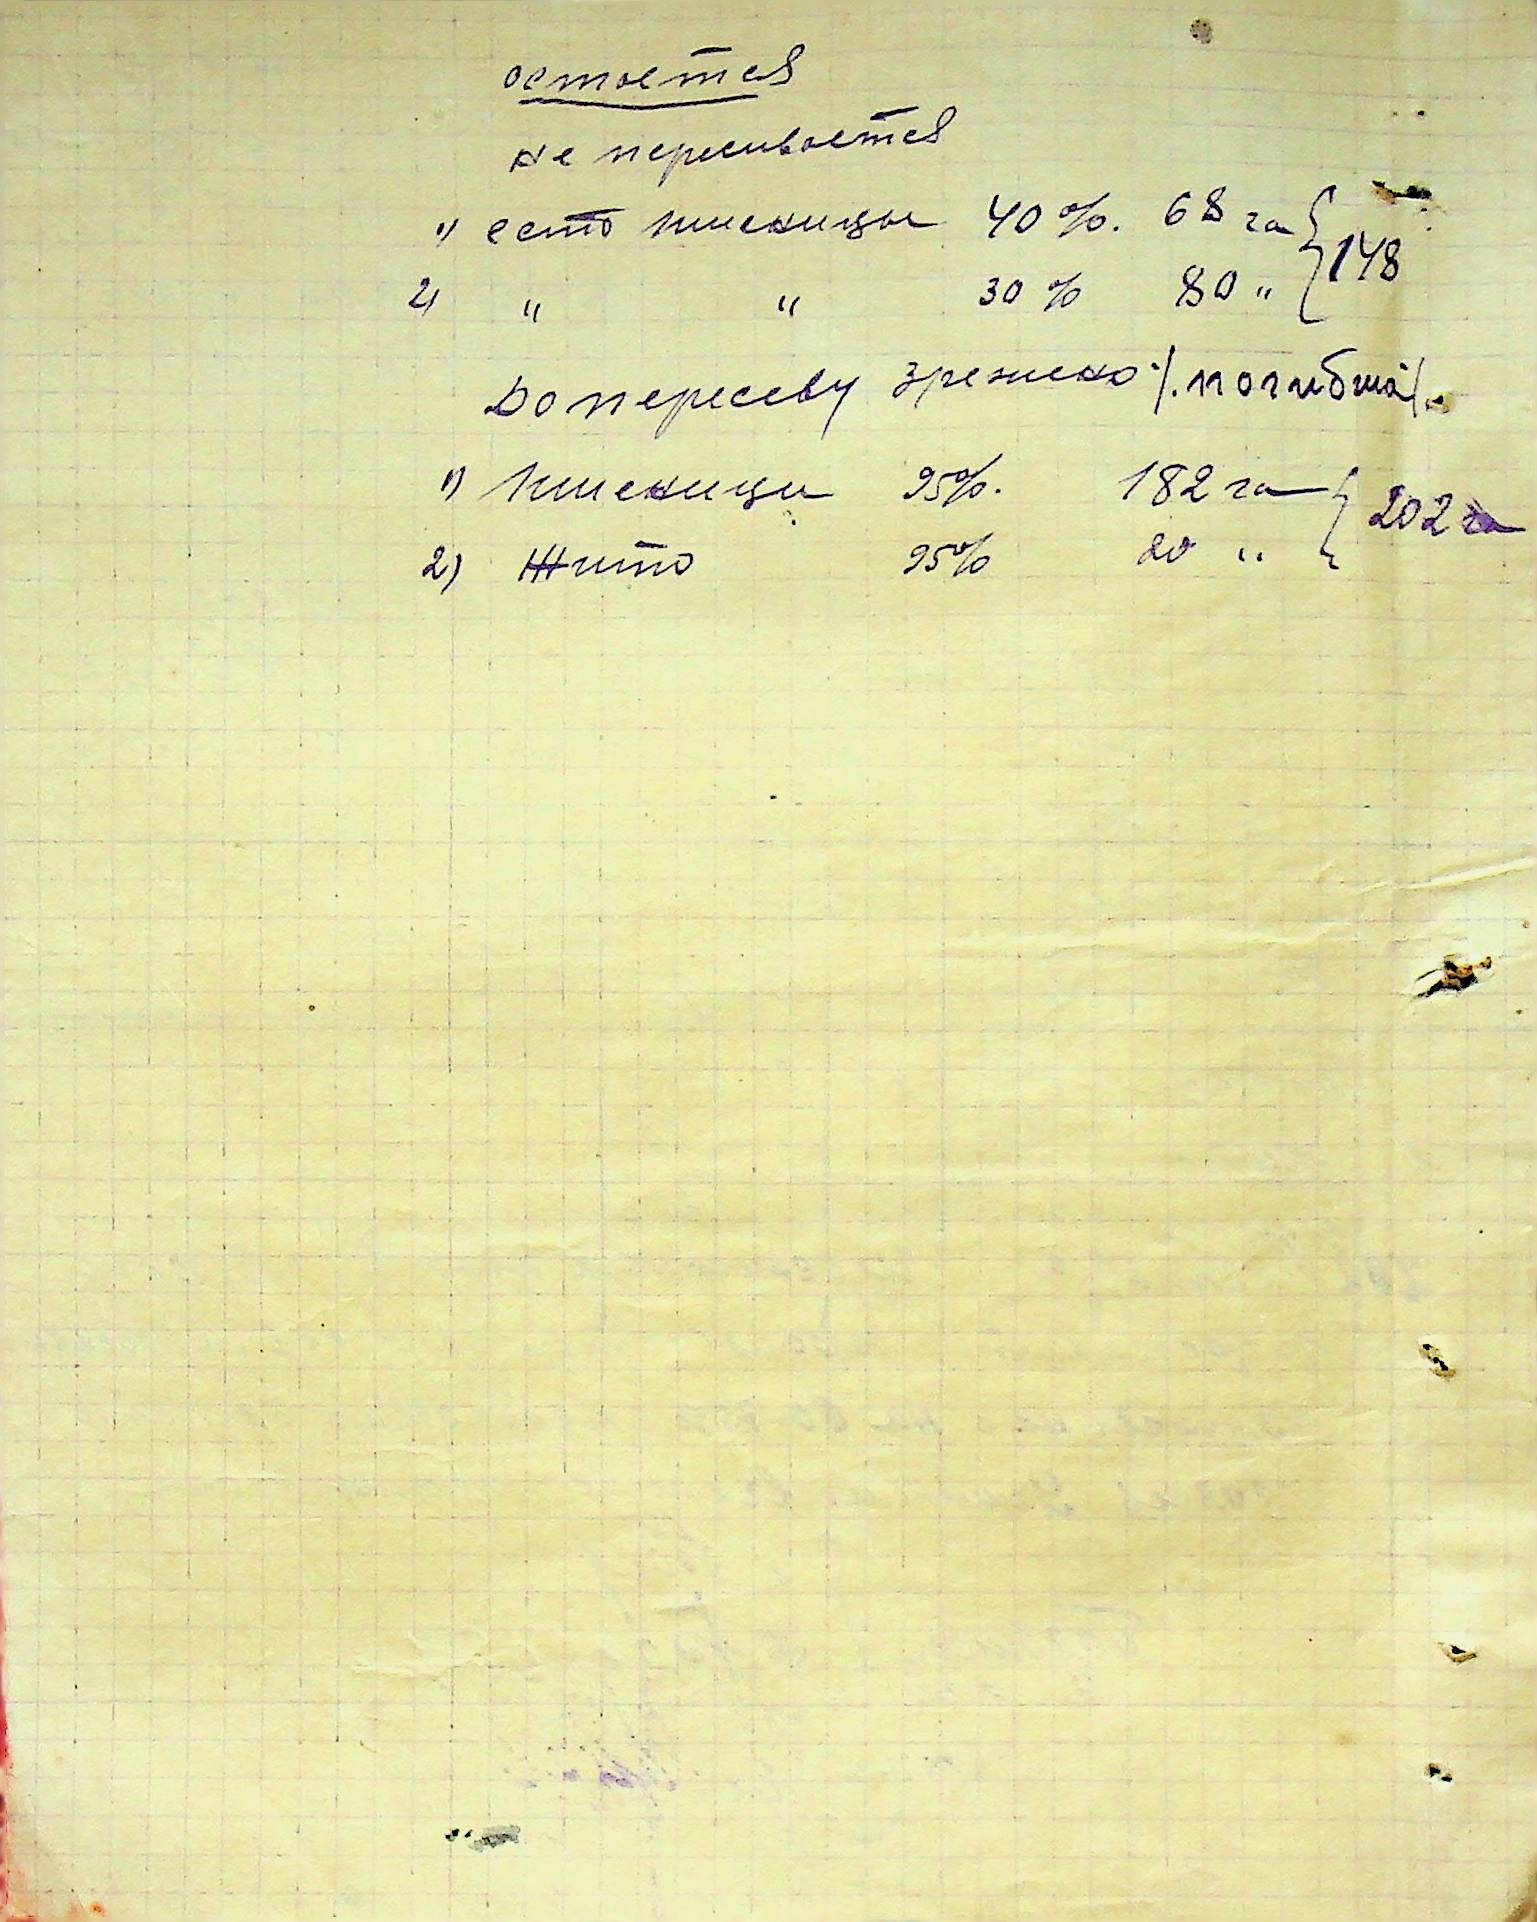 остается
не пересивается
1) есто пшеницы 40%. 68 га } 148
2) " " 30% 80 "
До пересеву зрежено /.погибша/.
1) Пшеници 95%. 182 га } 202 га
2) Жито 95% 20 "